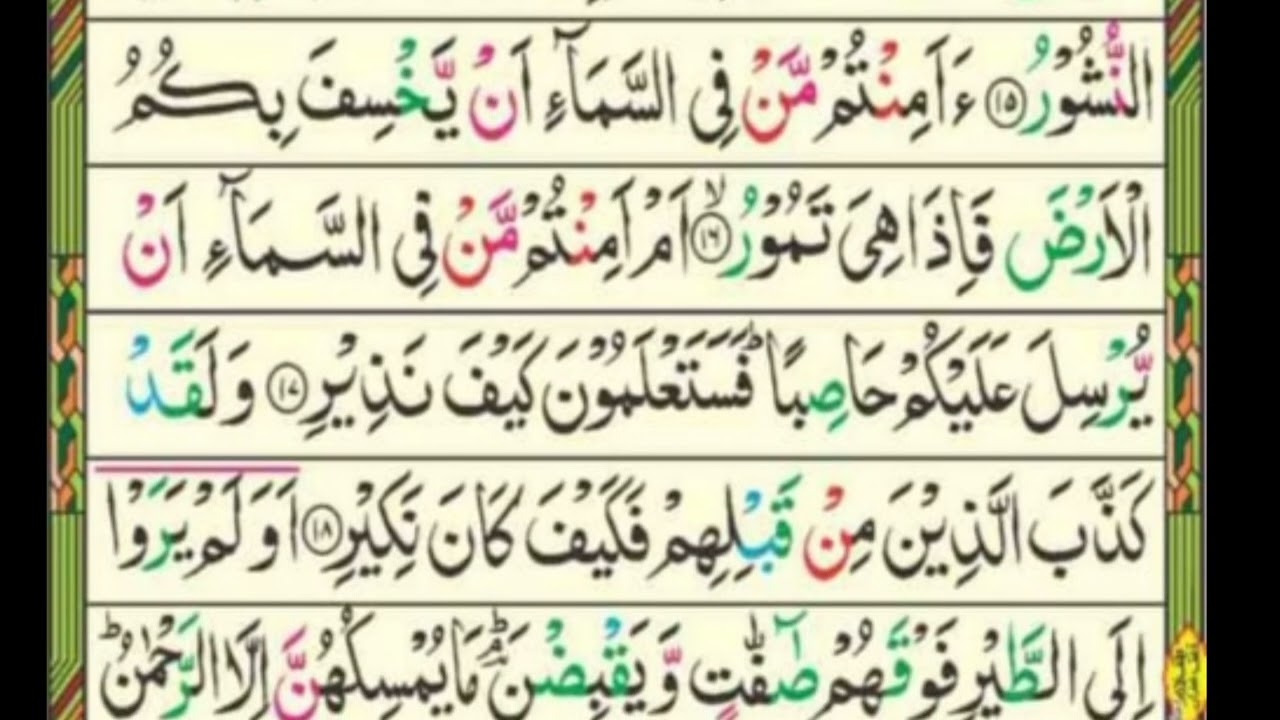 النُّشُوۡرُ ﴿۱۵﴾ ءَاَمِنۡتُمۡ مَّنۡ فِى السَّمَآءِ اَنۡ يَّخۡسِفَ بِكُمُ
الۡاَرۡضَ فَاِذَا هِىَ تَمُوۡرُۙ ﴿۱۶﴾ اَمۡ اَمِنۡتُمۡ مَّنۡ فِى السَّمَآءِ اَنۡ
يُّرۡسِلَ عَلَيۡكُمۡ حَاصِبًاؕ فَسَتَعۡلَمُوۡنَ كَيۡفَ نَذِيۡرِ ﴿۱۷﴾ وَلَقَدۡ
كَذَّبَ الَّذِيۡنَ مِنۡ قَبۡلِهِمۡ فَكَيۡفَ كَانَ نَكِيۡرِ ﴿۱۸﴾ اَوَلَمۡ يَرَوۡا
اِلَى الطَّيۡرِ فَوۡقَهُمۡ صٰٓفّٰتٍ وَّيَقۡبِضۡنَؔؕۘ مَا يُمۡسِكُهُنَّ اِلَّا الرَّحۡمٰنُؕ